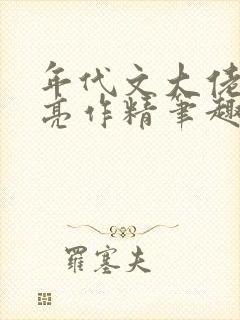 年代文大佬
亮作精笔趣
羅塞夫